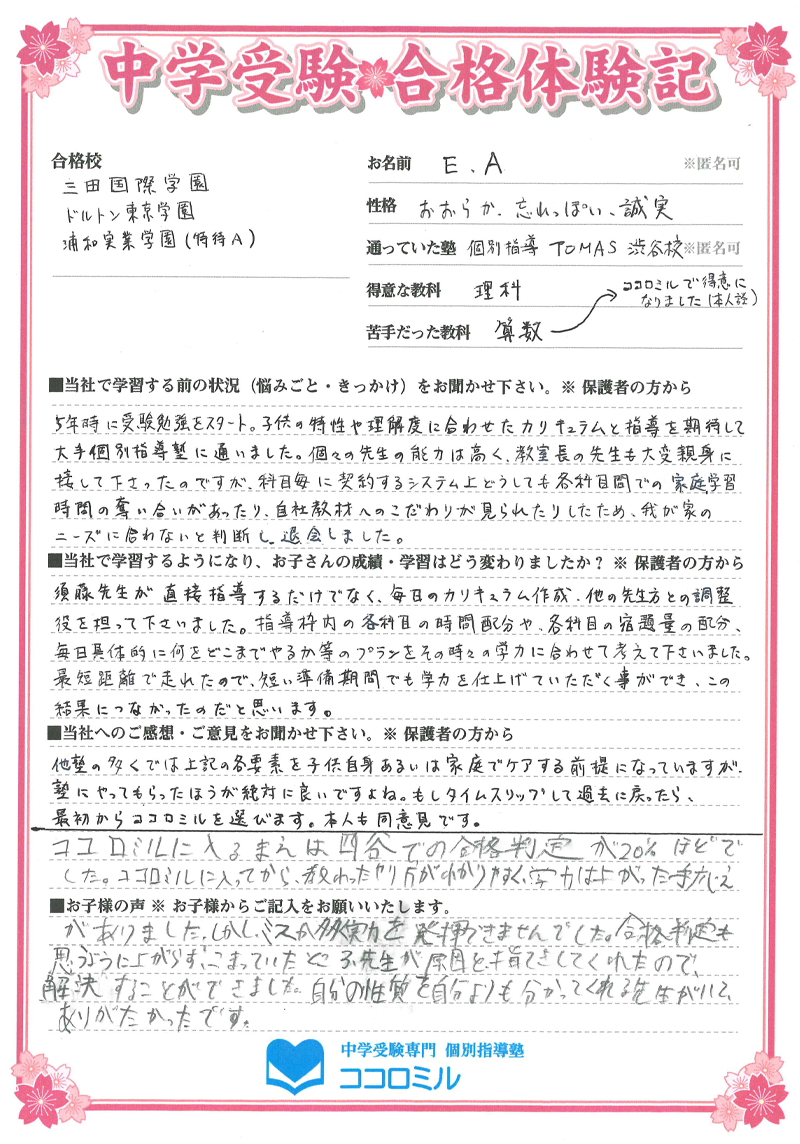 中学受験合格体験記
合格校
三田国際学園
ドルトン東京学園
浦和実業学園(特待A)
お名前 E.A ※匿名可
性格 おおらか、忘れっぽい、誠実
通っていた塾 個別指導 TOMAS 渋谷校 ※匿名可
得意な教科 理科
ココロミルで得意に
なりました(本人談)
苦手だった教科 算数
■当社で学習する前の状況(悩みごと・きっかけ)をお聞かせ下さい。※ 保護者の方から
5年時に受験勉強をスタート。子供の特性や理解度に合わせたカリキュラムと指導を期待して
大手個別指導塾に通いました。個々の先生の能力は高く、教室長の先生も大変親身に
接して下さったのですが、科目毎に契約するシステム上どうしても各科目間での家庭学習
時間の奪い合いがあったり、自社教材へのこだわりが見られたりしたため、我が家の
ニーズに合わないと判断し退会しました。
■当社で学習するようになり、お子さんの成績・学習はどう変わりましたか? ※ 保護者の方から
須藤先生が直接指導するだけでなく、毎日のカリキュラム作成、他の先生方との調整
役を担って下さいました。指導枠内の各科目の時間配分や、各科目の宿題量の配分、
毎日具体的に何をどこまでやるか等のプランをその時々の学力に合わせて考えて下さいました。
最短距離で走れたので、短い準備期間でも学力を仕上げていただく事ができ、この
結果につながったのだと思います。
■当社へのご感想・ご意見をお聞かせ下さい。※ 保護者の方から
他塾の多くでは上記の各要素を子供自身あるいは家庭でケアする前提になっていますが、
塾にやってもらったほうが絶対に良いですよね。もしタイムスリップして過去に戻ったら、
最初からココロミルを選びます。本人も同意見です。
ココロミルに入るまえは四谷での合格判定が20%ほどで
した。ココロミルに入ってから、教わったやり方がわかりやすく、学力は上がった手ごたえ
■お子様の声 ※ お子様からご記入をお願いいたします。
がありました。しかしミスが多く実力を発揮できませんでした。合格判定も
思うように上がらず、こまっていたとこ先生が原因を指てきしてくれたので、
解決することができました。自分の性質を自分よりも分かってくれる先生がいて、
ありがたかったです。
中学受験専門 個別指導塾
ココロミル